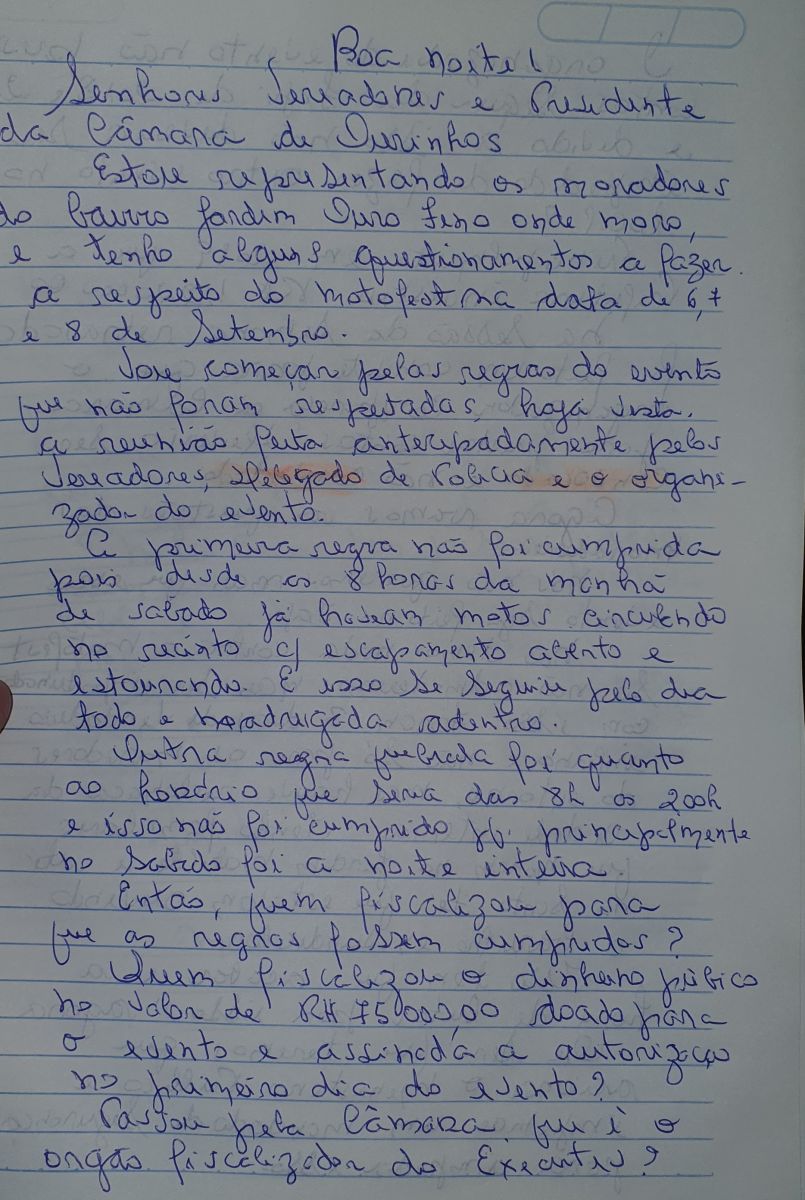 Boa noite!
Senhores Vereadores e Presidente
da Câmara de Ourinhos
Estou representando os moradores
do bairro Jardim Ouro Fino onde moro,
e tenho alguns questionamentos a fazer.
a respeito do motofest na data de 6,7
e 8 de Setembro.
Vou começar pelas regras do evento
que não foram respeitadas, haja vista.
a reunião feita antecipadamente pelos
Vereadores, Delegado de Polícia e o organi-
zador do evento.
A primeira regra não foi cumprida
pois desde as 8 horas da manhã
de sábado já haviam motos circulando
no recinto c/ escapamento aberto e
estourando. E isso se seguiu pelo dia
todo e madrugada adentro.
Outra regra quebrada foi quanto
ao horário que seria das 8h as 200h
e isso não foi cumprido pq. principalmente
no Sábado foi a noite inteira.
Então, quem fiscalizou para
que as regras fossem cumpridas?
Quem fiscalizou o dinheiro púbico
no valor de R$ 75000,00 doado para
o evento e assinada a autorização
no primeiro dia do evento?
Passou pela Câmara que é o
orgão fiscalizador do Executivo?